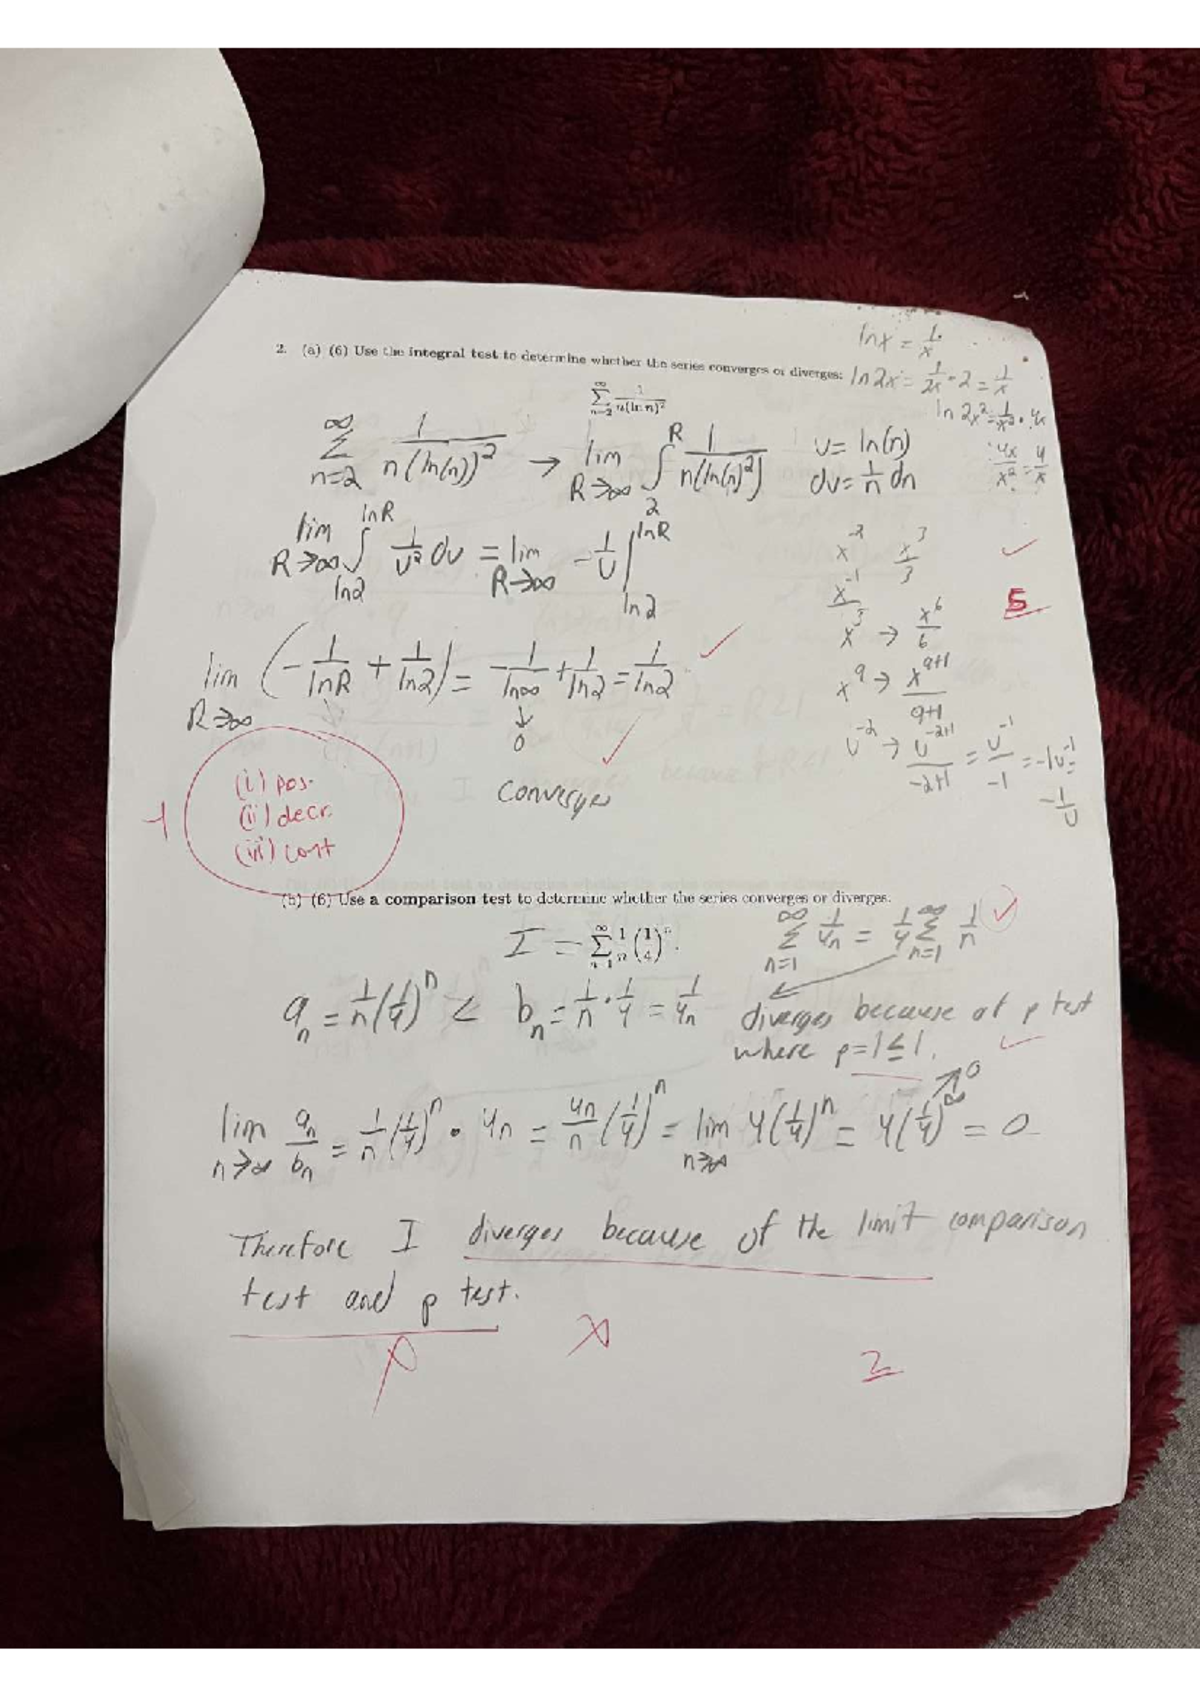 2. (a) (6) Use the integral test to determine whether the series converges or diverges:
∑_{n=2}^{∞} 1/(n(ln n)^2)
lnx = 1/x
ln2x = 1/2x · 2 = 1/x
ln 2x^2 = 1/x^2 · 4x
4x/x^2 = 4/x
∑_{n=2}^{∞} 1/(n(ln(n))^2) → lim_{R→∞} ∫_2^R 1/(n(ln(n)^2)) u = ln(n)
du = 1/n dn
lim_{R→∞} ∫_{ln2}^{lnR} 1/u^2 du = lim_{R→∞} -1/u |_{ln2}^{lnR}
x^-2 x^3/3
x^-1
x^5 → x^6/6
x^a → x^{a+1}/(a+1)
u^-2 → u^{-2+1}/(-2+1) = u^-1/-1 = -1u^-1 =
-1/u
✓
5
lim_{R→∞} (-1/lnR + 1/ln2) = -1/ln∞ + 1/ln2 = 1/ln2 ✓
↓
0 ✓
converges
-1
(i) pos.
(ii) decr.
(iii) cont
(b) (6) Use a comparison test to determine whether the series converges or diverges:
I = ∑_{n=1}^{∞} 1/n (1/4)^n.
∑_{n=1}^{∞} 1/4n = 1/4 ∑_{n=1}^{∞} 1/n ✓
a_n = 1/n (1/4)^n < b_n = 1/n · 1/4 = 1/4n
diverges because of p test
where p=1≤1. ✓
lim_{n→∞} a_n/b_n = 1/n (1/4)^n · 4n = 4n/n (1/4)^n = lim_{n→∞} 4(1/4)^n = 4(1/4)^∞ ↗0 = 0
Therefore I diverges because of the limit comparison
test and p test.
2